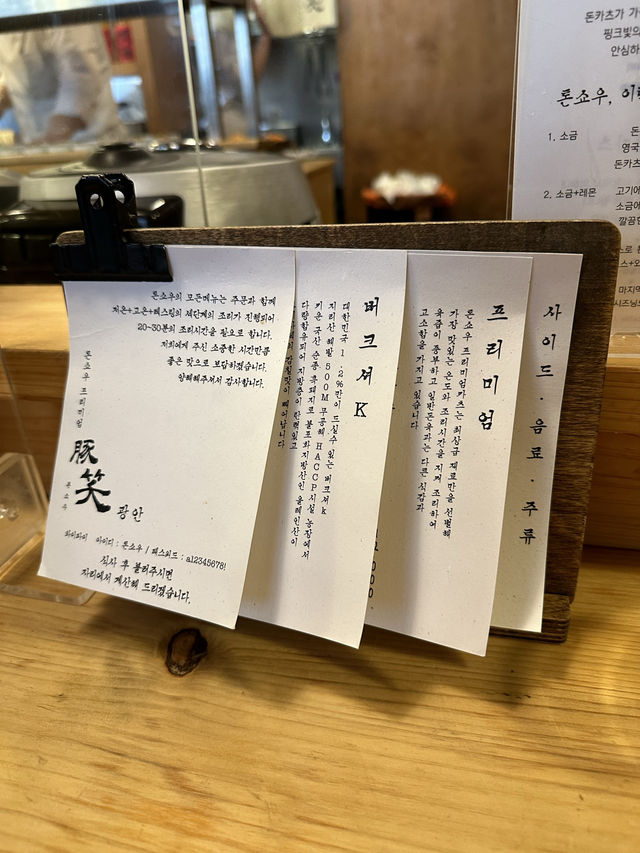 톤쇼우의 모든메뉴는 주문과 함께
저온+고온+레스팅의 세단계의 조리가 진행되어
20~30분의 조리시간을 필요로 합니다.
저희에게 주신 소중한 시간만큼
좋은 맛으로 보답하겠습니다.
양해해주셔서 감사합니다.
톤쇼우 프리미엄
豚笑
톤쇼우
광안
와이파이 아이디 : 톤쇼우 / 패스워드 : a12345678!
식사 후 불러주시면
자리에서 계산해 드리겠습니다.
버크셔 K
대한민국 1.2%만이 드실수 있는 버크셔k
지리산 해발 500M 무공해 HACCP시설 농장에서
키운 국산 순종 흑돼지로 불포화지방산인 올레인산이
다량함유되어 지방층이 탄력있고
감칠맛이 뛰어납니다
프리미엄
톤쇼우 프리미엄카츠는 최상급 재료만을 선별해
가장 맛있는 온도와 조리시간을 지켜 조리하여
육즙이 풍부하고 일반돈육과는 다른 식감과
고소함을 가지고 있습니다
사이드 · 음료 · 주류
돈카츠가
핑크빛의
안심하
톤쇼우, 이
1. 소금
영국
돈카츠
2. 소금+레몬
고기에
소금에
깔끔한
마지막